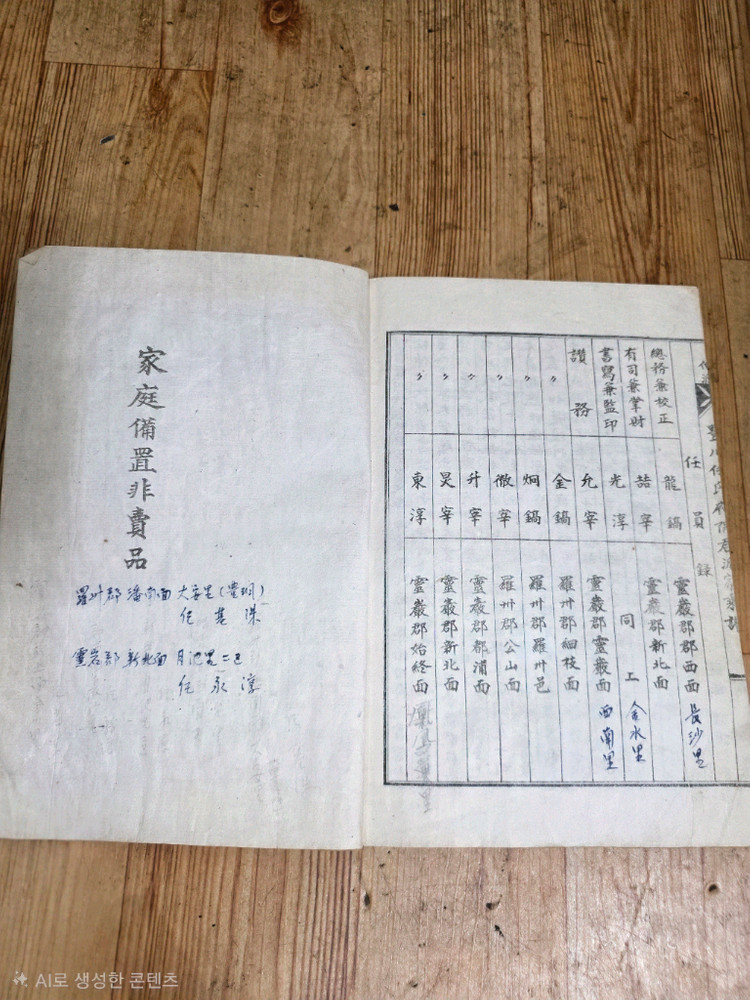 任員錄
總務兼校正 龍鎬 靈巖郡郡西面 長沙里
有司兼掌財 喆宰 靈巖郡新北面
書寫兼監印 光淳 同上 金水里
讚務 允宰 靈巖郡靈巖面 西南里
〃 金鎬 羅州郡細枝面
〃 炯鎬 羅州郡羅州邑
〃 徵宰 羅州郡公山面
〃 升宰 靈巖郡都浦面
〃 昊宰 靈巖郡新北面
〃 東淳 靈巖郡始終面
家庭備置非賣品
羅州郡 潘南面 大安里
任 基 洙
靈岩郡 新北面 月池里 二區
任 永 淳
AI로 생성한 콘텐츠